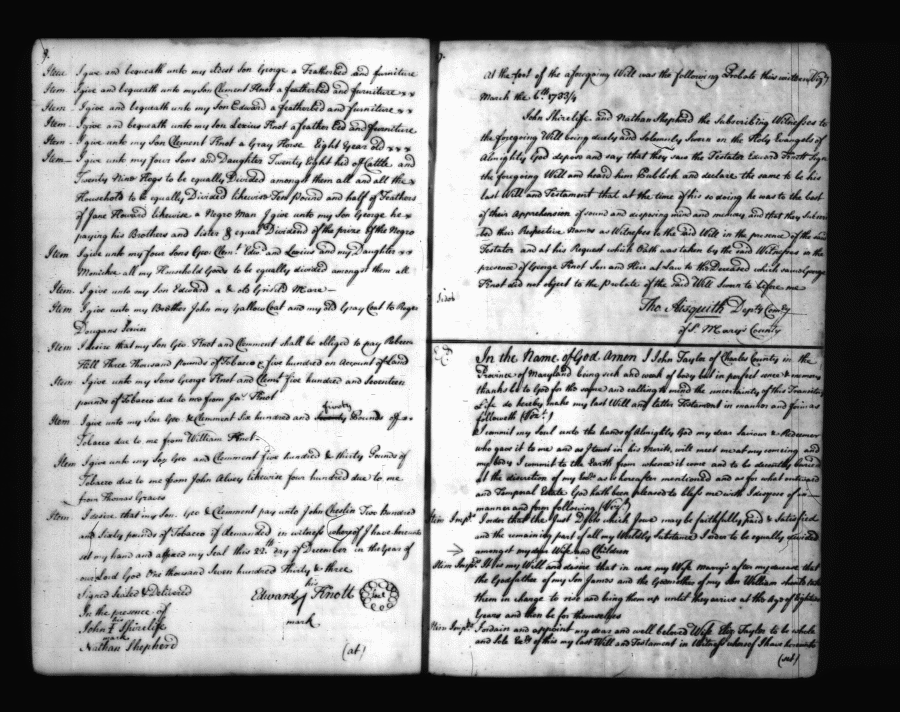 9.
Item I give and bequeath unto my eldest Son George a Featherbed and furniture
Item I give and bequeath unto my Son Clement Knot a featherbed and furniture x x
Item I give and bequeath unto my Son Edward a featherbed and furniture x x
Item I give and bequeath unto my Son Loxius Knot a feather bed and furniture
Item I give unto my Son Clement Knot a Gray Horse Eight Years old x x x
Item I give unto my four Sons and Daughter Twenty Eight hed of Cattle and
Twenty Nine Hogs to be equally Divided amongst them all and all the x
Household to be equally Divided likewise Ten Pound and half of Feathers
of Jane Howard likewise a Negro Man I give unto my Son George he x
paying his Brothers and Sister & equall Dividend of the prise of the Negro
Item I give unto my four Sons Geo: Clemt. Edwd. and Loxius and my Daughter x x
my Household Goods to be equally divided amongst them all
Item I give unto my Son Edward a old Grisild Mare
Item I give unto my Brother John my Coat and my old Gray Coat to Roger
Dougans
Item I desire that my Son Geo: Knot and Clemment shall be obliged to pay
Hall Three Thousand pounds of Tobacco & five hundred on Account of Land
Item I give unto my Sons George Knot and Clemt. five hundred and Seventeen
pounds of Tobacco due to me from Jas. Knot
Item I give unto my Son Geo & Clemment Six hundred and twenty Pounds of
Tobacco due to me from William Knot
Item I give unto my Son Geo and Clemment five hundred & thirty Pounds of
Tobacco due to me from John Alvey likewise four hundred due to me
from Thomas Graves
Item I desire that my Son Geo & Clemment pay unto John Cheslin Two hundred
and Sixty pounds of Tobacco if demanded in witness whereof I have hereunto
set my hand and afixed my Seal this 22th day of December in the Year of
our Lord God One thousand Seven hundred Thirty & three
Signed Sealed & Delivered
In the presence of
his
John Shirelife
mark
Nathan Shepherd
his
Edward Knott Seal
mark
(at)
At the foot of the aforegoing Will was the following Probate thus written
March the 6th 1733/4
John Shirelife and Nathan Shepherd the Subscribing Witnesses to
the foregoing Will being duely and Solemnly Sworn on the Holy Evangels of
Almighty God depose and say that they saw the Testator Edward Knott Sign
the foregoing Will and heard him Publish and declare the same to be his
last Will and Testament that at the time of his so doing he was to the best
of their Apprehension of sound and disposing mind and memory and that they Subscri
bed their Respective Names as Witnesses to the said Will in the presence of the
Testator and at his Request which Oath was taken by the said Witnesses in the
presence of George Knot Son and Heir at Law to the Deceased which said George
Knot did not object to the Probate of the said Will Sworn to before me
Tho: Aisquith Depty Comry
of St. Mary's County
In the Name of God Amen I John Taylor of Charles County in the
Province of Maryland being sick and weak of body but in perfect sence & memory
thanks be to God for the same and calling to mind the uncertainty of this Transitory
Life do hereby make my last Will and latter Testament in manner and form as
followeth (Vizt.)
I commit my Soul unto the hands of Almighty God my dear Saviour & Redeemer
who gave it to me and as I trust in his merits will meet me at my comeing and
my body I commit to the Earth from whence it came and to be decently buried
at the discretion of my Exrs. as hereafter mentioned and as for what
and Temporal Estate God hath been pleased to bless me with I dispose of in
manner and form following (Vizt.)
Item Imps. I order that the Just Debts which I owe may be faithfully paid & Satisfied
and the remaining part of all my Worldly Substance I order to be equally divided
amongst my dear Wife and Children
Item Imps. It is my Will and desire that in case my Wife Marrys after my decease that
the Godfather of my Son James and the Godmother of my Son William
them in charge to rise and bring them up until they arrive at the Age of Eighteen
Years and then be for themselves
Item Imps. I ordain and appoint my dear and well beloved Wife Eliz Taylor to be whole
and Sole Exr. of this my last Will and Testament in Witness whereof I have hereunto
(set)